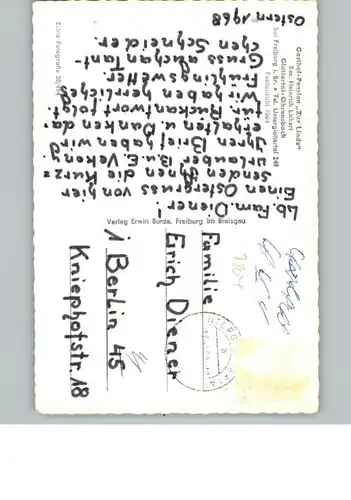 Gasthof-Pension „Zur Linde"
Bes. Heinrich Lickert
Glottertal-Ohrensbach
bei Freiburg i. Br. • Tel. Unterglottertal 249
Postleitzahl 7801
Ostern 1968
Lb. Fam. Diener!
Einen Ostergruss von hier
senden Ihnen die Kurz=
urlauber B. u. E. Vekony.
Ihren Brief haben wir
erhalten u. Danken da=
für. Rückantwort folgt.
Wir haben herrliches
Frühlingswetter.
Gruss auch an Tant=
chen Schneider.
Echte Fotografie
Verlag Erwin Burda, Freiburg im Breisgau
Familie
Erich Diener
1 Berlin 45
Kniephofstr. 18